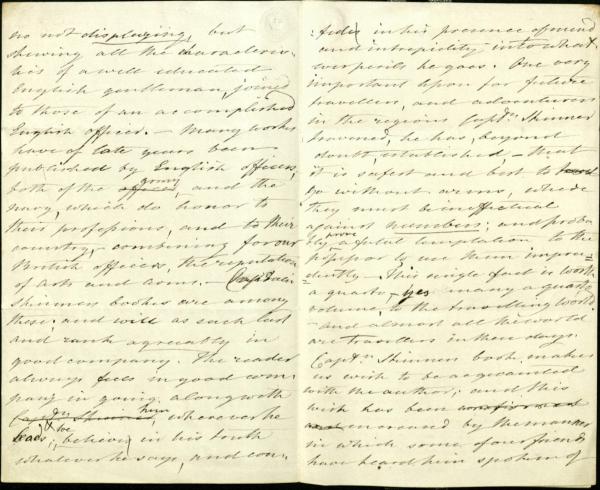 no not displaying, but
shewing all the characteris-
tics of a well educated
English gentleman, joined
to those of an accomplished
English officer. — Many works
have of late years been
published by English officers,
both of the army, and the
navy, which do honor to
their professions, and to their
country, — combining for our
British officers, the reputation
of arts and arms. — Captain
Skinners books are among
these; and will as such last
and rank agreeably in
good company. The reader
always feels in good com-
pany in going along with
him, wherever he
leads; believing in his truth
whatever he says, and con-
fides in his presence of mind
and intrepidity, into what
ever perils he goes. One very
important upon for future
travellers, and adventurers
in the regions Captn. Skinner
traversed, he has, beyond
doubt, established, — that
it is safest and best to
go without arms, where
they must be ineffectual
against numbers; and proba-
bly prove a fatal temptation to the
possessor to use them impru-
dently — This single fact is worth
a quarto, — yes many a quarto
volume, to the travelling world
— and almost all the world
are travellers in these days.
Captn. Skinners book makes
us wish to be acquainted
with the author; and this
wish has been
increased by the manner
in which some of our friends
have heard him spoken of